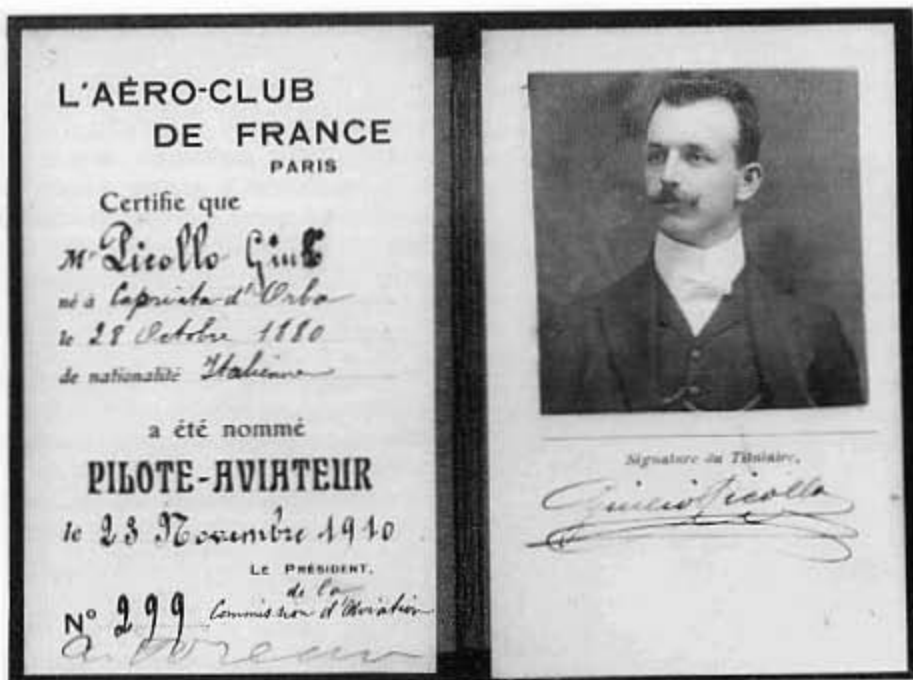 L'AÉRO-CLUB
DE FRANCE
PARIS
Certifie que
Mr Picollo Giulio
né à Capriata d'Orba
le 28 Octobre 1880
de nationalité Italienne
a été nommé
PILOTE-AVIATEUR
le 23 Novembre 1910
LE PRÉSIDENT,
de la
Commission d'Aviation
No 299
Signature du Titulaire,
Giulio Picollo